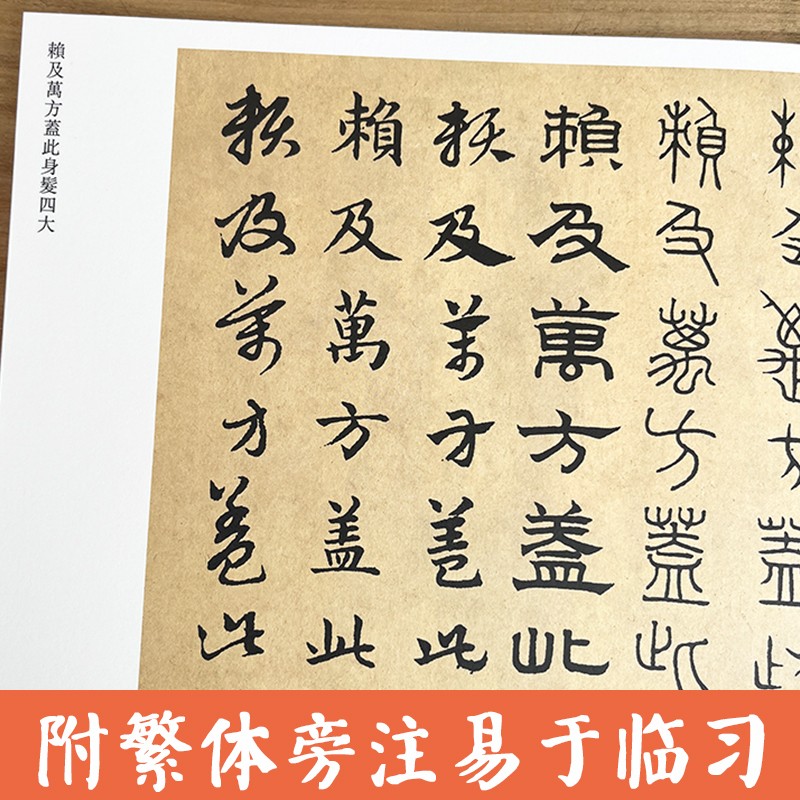 賴及萬方蓋此
賴及萬方蓋此
賴及萬方蓋此
賴及萬方蓋此
賴及萬方蓋此
賴及萬方蓋此身髮四大
附繁体旁注易于临习